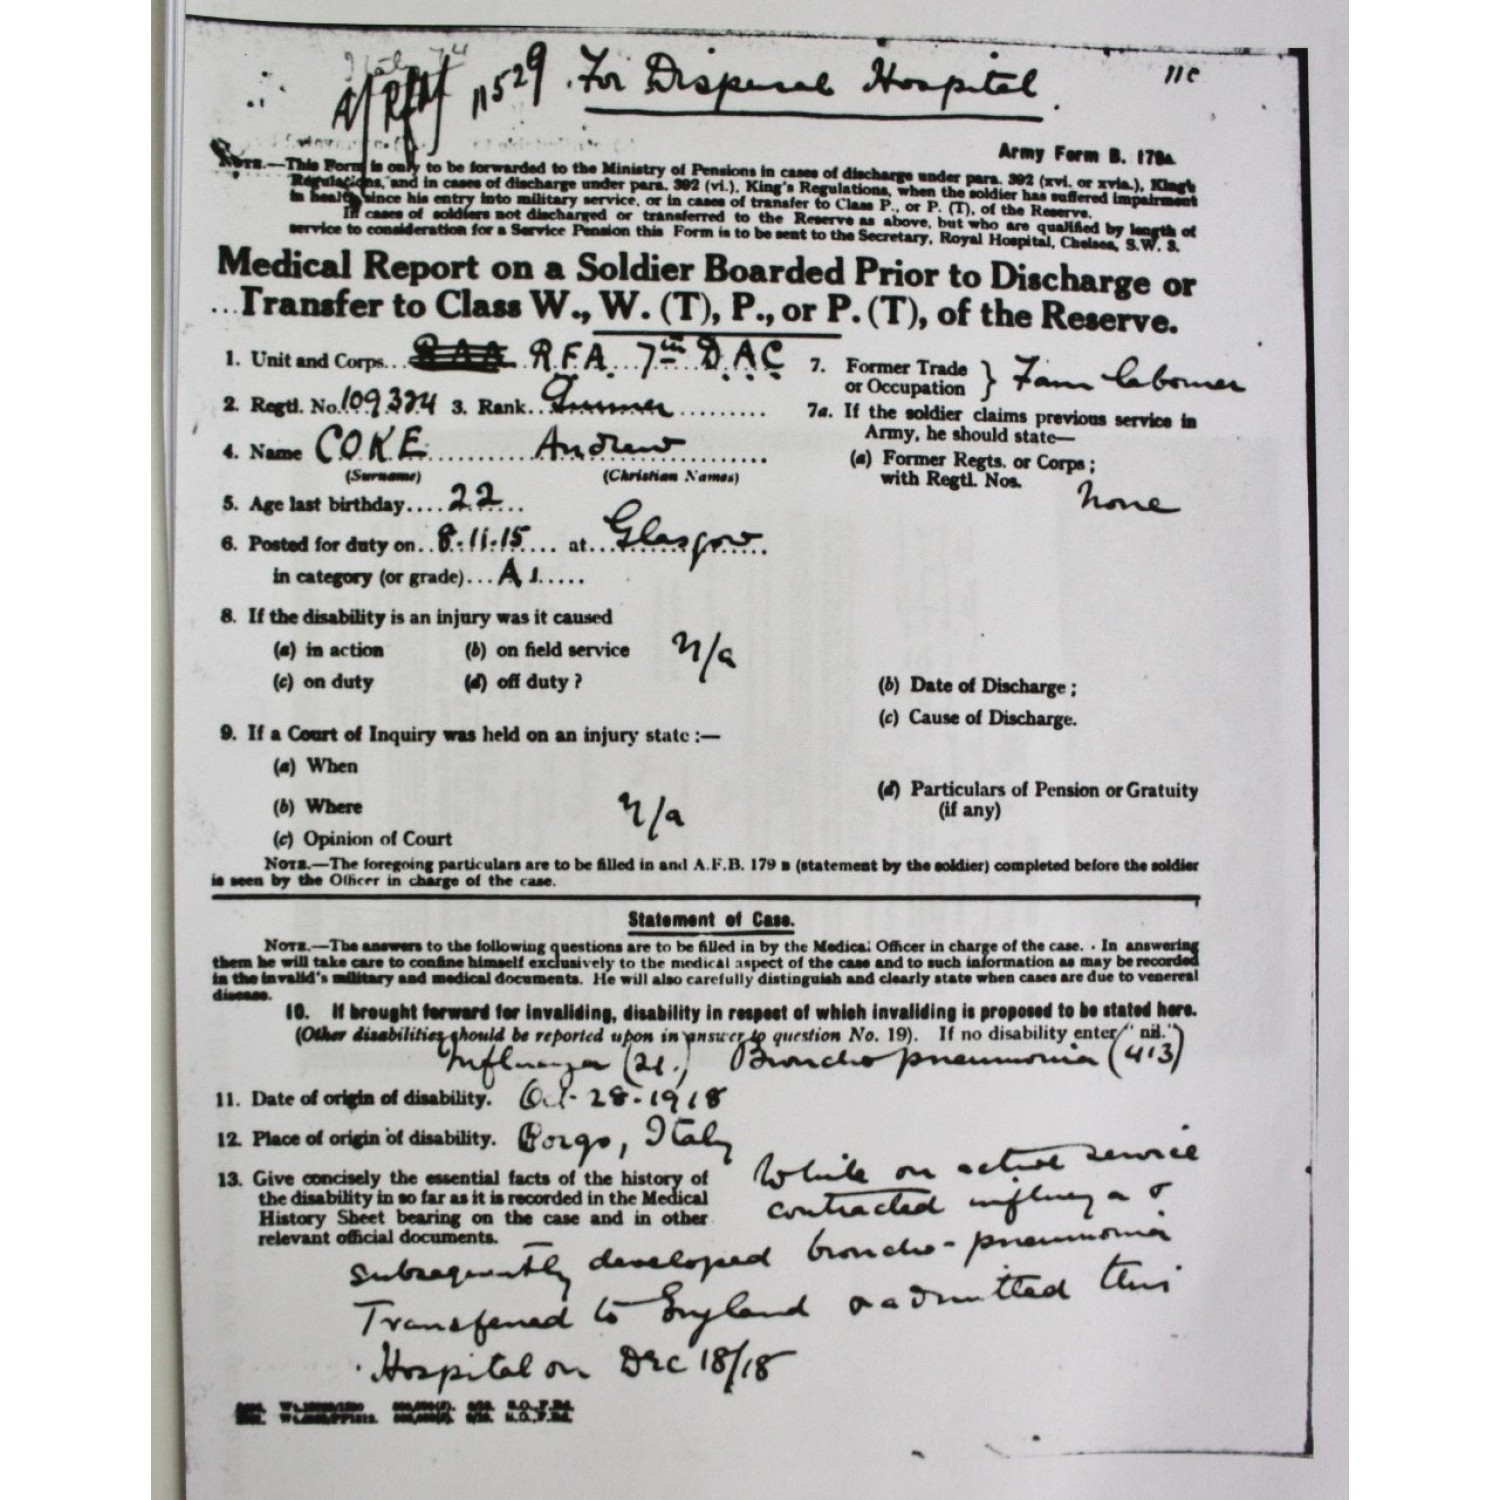 11529. For Disposal Hospital. 11c
Army Form B. 179A.
NOTE.—This Form is only to be forwarded to the Ministry of Pensions in cases of discharge under para. 392 (xvi. or xvia.), King's
Regulations, and in cases of discharge under para. 392 (vi.), King's Regulations, when the soldier has suffered impairment
in health since his entry into military service, or in cases of transfer to Class P., or P. (T), of the Reserve.
In cases of soldiers not discharged or transferred to the Reserve as above, but who are qualified by length of
service to consideration for a Service Pension this Form is to be sent to the Secretary, Royal Hospital, Chelsea, S.W. 3.
Medical Report on a Soldier Boarded Prior to Discharge or
Transfer to Class W., W. (T), P., or P. (T), of the Reserve.
1. Unit and Corps... R.F.A. 7th D.A.C.
2. Regtl. No. 109324 3. Rank.. Gunner
4. Name COKE Andrew
(Surname) (Christian Names)
5. Age last birthday.... 22
6. Posted for duty on.. 8.11.15 at... Glasgow
in category (or grade)... A1
7. Former Trade or Occupation } Farm labourer
7a. If the soldier claims previous service in
Army, he should state—
(a) Former Regts. or Corps;
with Regtl. Nos.
None
8. If the disability is an injury was it caused
(a) in action (b) on field service n/a
(c) on duty (d) off duty?
(b) Date of Discharge;
(c) Cause of Discharge.
9. If a Court of Inquiry was held on an injury state:—
(a) When
(d) Particulars of Pension or Gratuity
(if any)
(b) Where n/a
(c) Opinion of Court
NOTE.—The foregoing particulars are to be filled in and A.F.B. 179 B (statement by the soldier) completed before the soldier
is seen by the Officer in charge of the case.
Statement of Case.
NOTE.—The answers to the following questions are to be filled in by the Medical Officer in charge of the case. In answering
them he will take care to confine himself exclusively to the medical aspect of the case and to such information as may be recorded
in the invalid's military and medical documents. He will also carefully distinguish and clearly state when cases are due to venereal
disease.
10. If brought forward for invaliding, disability in respect of which invaliding is proposed to be stated here.
(Other disabilities should be reported upon in answer to question No. 19). If no disability enter "nil."
Influenza (21.) Broncho pneumonia (413)
11. Date of origin of disability. Oct-28-1918
12. Place of origin of disability. Borgo, Italy
13. Give concisely the essential facts of the history of
the disability in so far as it is recorded in the Medical
History Sheet bearing on the case and in other
relevant official documents.
While on active service
contracted influenza &
subsequently developed broncho-pneumonia
Transferred to England & admitted this
Hospital on Dec 18/18